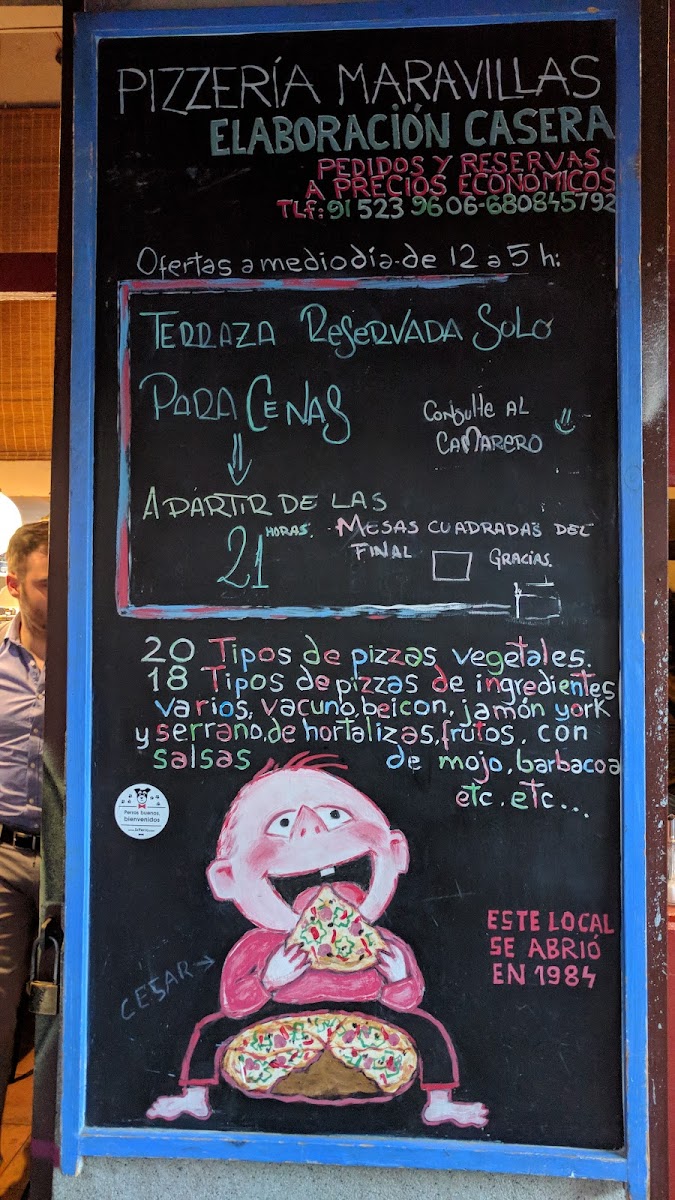 PIZZERÍA MARAVILLAS
ELABORACIÓN CASERA
PEDIDOS Y RESERVAS
A PRECIOS ECONOMICOS
TLf: 91 523 96 06-680845792
Ofertas a mediodía de 12 a 5 h:
TERRAZA RESERVADA SOLO
PARA CENAS
CONSULTE AL
CAMARERO
A PARTIR DE LAS
21 HORAS.
MESAS CUADRADAS DEL
FINAL
GRACIAS.
20 Tipos de pizzas vegetales.
18 Tipos de pizzas de ingredientes
varios, vacuno, beicon, jamón york
y serrano, de hortalizas, frutos, con
salsas de mojo, barbacoa
etc. etc...
Perros buenos,
bienvenidos
CÉSAR →
ESTE LOCAL
SE ABRIÓ
EN 1984